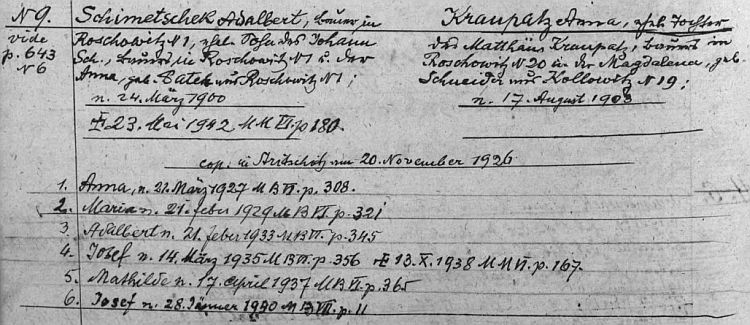 N 9. Schimetschek Adalbert, Bauer in
Kraupatz Anna, ehel. Tochter
vide
p. 643
N 6
Roschowitz N 1, ehel. Sohn des Johann
Sch., Bauers in Roschowitz N 1 u. der
Anna, geb. aus Roschowitz N 1;
n. 24. März 1900
des Matthäus Kraupatz, Bauers in
Roschowitz N 20 u. der Magdalena, geb.
Schneider aus Kollowitz N 19;
n. 17. August 1903
23. Mai 1942 M M VI. p. 180.
cop. in am 20. November 1926
1. Anna, n. 22. März 1927 M B VI. p. 308.
2. Maria n. 21. feber 1929 M B VI p. 321
3. Adalbert n. 21. feber 1933 M B VI. p. 345
4. Josef n. 14. März 1935 M B VI. p. 356 13. X. 1938 M M VI. p. 167.
5. Mathilde n. 17. April 1937 M B VI p. 365
6. Josef n. 28. Jänner M B VII. p. 11